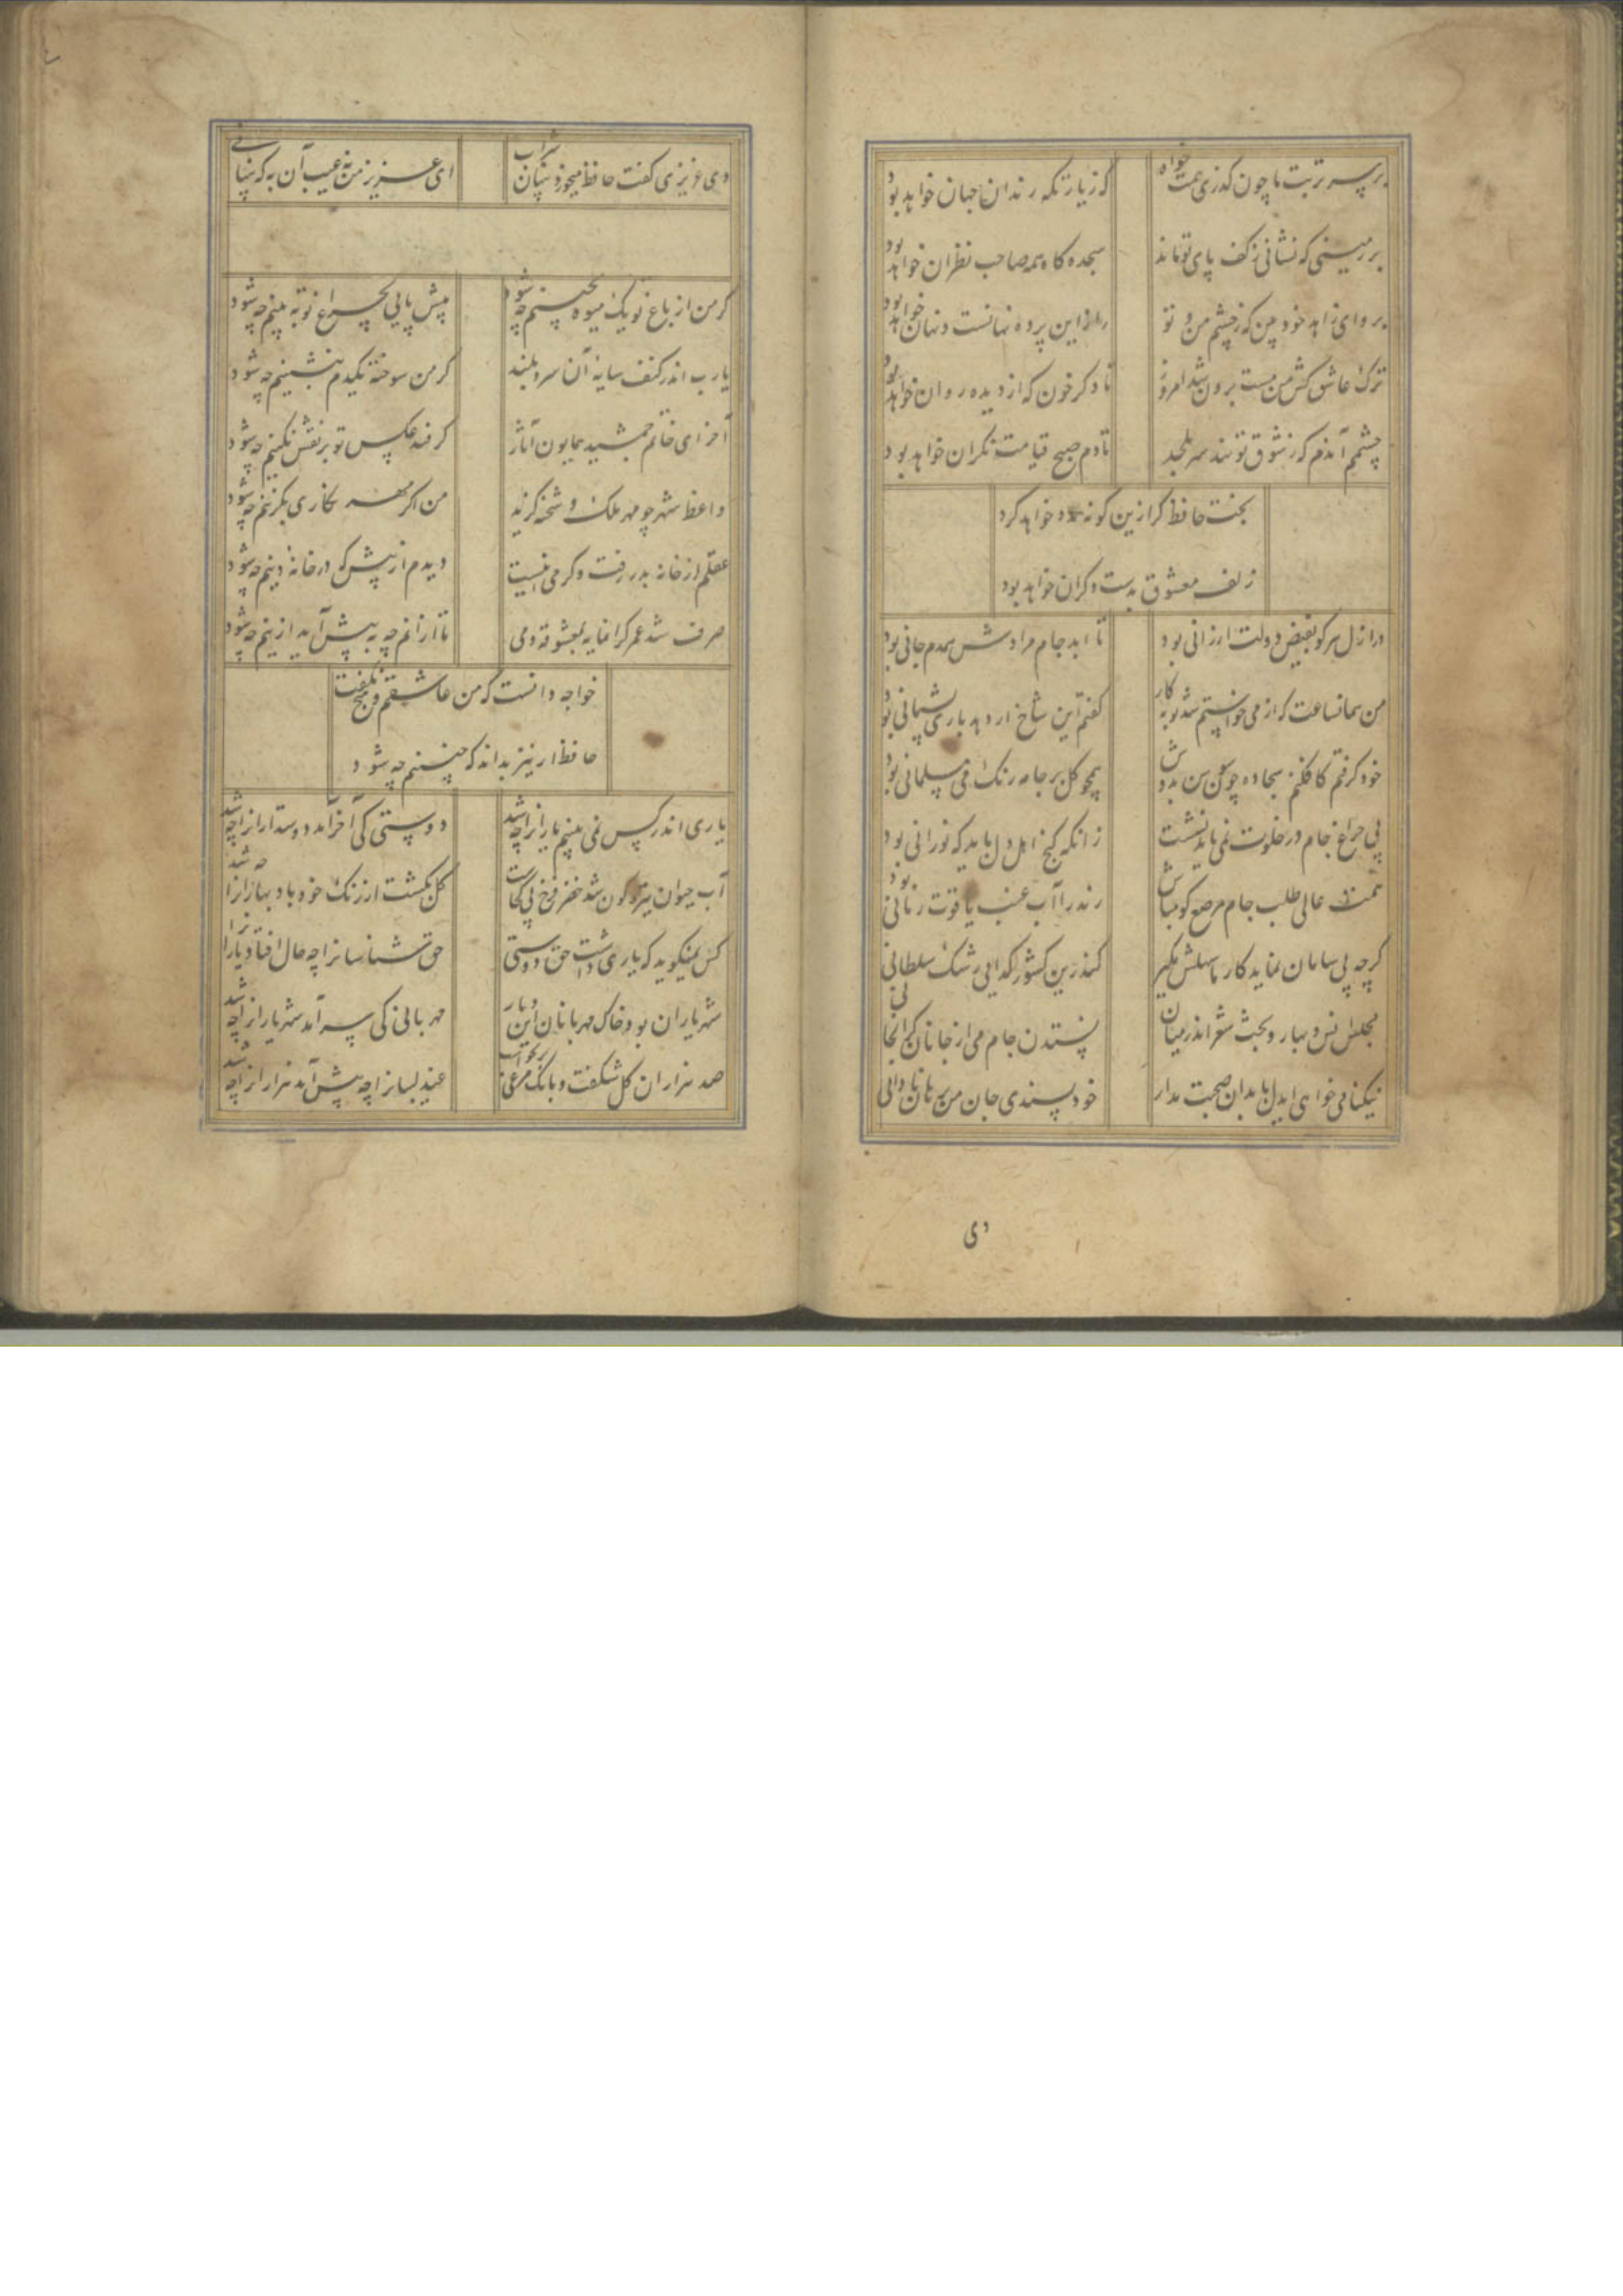 بر سر تربت ما چون گذری همت خواه
که زیارتگه رندان جهان خواهد بود
بر زمینی که نشانی ز کف پای تو ماند
سجده گاه همه صاحب نظران خواهد بود
برو ای زاهد خود بین که ز چشم من و تو
راز این پرده نهانست و نهان خواهد بود
ترک عاشق کش من مست برون شد امروز
تا دگر خون که از دیده روان خواهد بود
چشمم آندم که ز شوق تو نهد سر بلحد
تا دم صبح قیامت نگران خواهد بود
بخت حافظ گر ازین گونه مدد خواهد کرد
زلف معشوق بدست دگران خواهد بود
در ازل هر کو بفیض دولت ارزانی بود
تا ابد جام مرادش همدم جانی بود
من همانساعت که از می خواستم شد توبه کار
گفتم این شاخ ار دهد باری پشیمانی بود
خود گرفتم کافکنم سجاده چون سوسن بدوش
همچو گل بر خامه رنگ می مسلمانی بود
بی چراغ جام در خلوت نمی یارم نشست
زانکه کنج اهل دل باید که نورانی بود
همت عالی طلب جام مرصع گو مباش
رند را آب عنب یاقوت رمانی بود
گرچه بی سامان نماید کار ما سهلش مگیر
کندرین کشور گدایی رشک سلطانی
مجلس انس و بهار و بحث شعر اندر میان
نستدن جام می از جانان گرانجانی
نیکنامی خواهی ایدل با بدان صحبت مدار
خود پسندی جان من برهان نادانی
دی
دی عزیزی گفت حافظ میخورد پنهان شراب
ای عزیز من نه عیب آن به که پنهانی
گر من از باغ تو یک میوه بچینم چه شود
پیش پایی بچراغ تو ببینم چه شود
یارب اندر کنف سایه آن سرو بلند
گر من سوخته یکدم بنشینم چه شود
آخر ای خاتم جمشید همایون آثار
گر فتد عکس تو بر نقش نگینم چه شود
واعظ شهر چو مهر ملک و شحنه گزید
من اگر مهر نگاری بگزینم چه شود
عقلم از خانه بدر رفت و گر می اینست
دیدم از پیش که در خانه دینم چه شود
صرف شد عمر گرانمایه بمعشوقه و می
تا از آنم چه به پیش آید ازینم چه شود
خواجه دانست که من عاشقم و هیچ نگفت
حافظ ار نیز بداند که چنینم چه شود
یاری اندر کس نمی بینم یارانرا چه شد
دوستی کی آخر آمد دوستدارانرا چه شد
آب حیوان تیره گون شد خضر فرخ پی کجاست
گل بگشت از رنگ خود باد بهارانرا چه شد
کس نمیگوید که یاری داشت حق دوستی
حق شناسانرا چه حال افتاد یارانرا
شهر یاران بود و خاک مهربانان این دیار
مهربانی کی سر آمد شهریارانرا چه شد
صد هزاران گل شکفت و بانگ مرغی برنخواست
عندلیبانرا چه پیش آمد هزارانرا چه شد